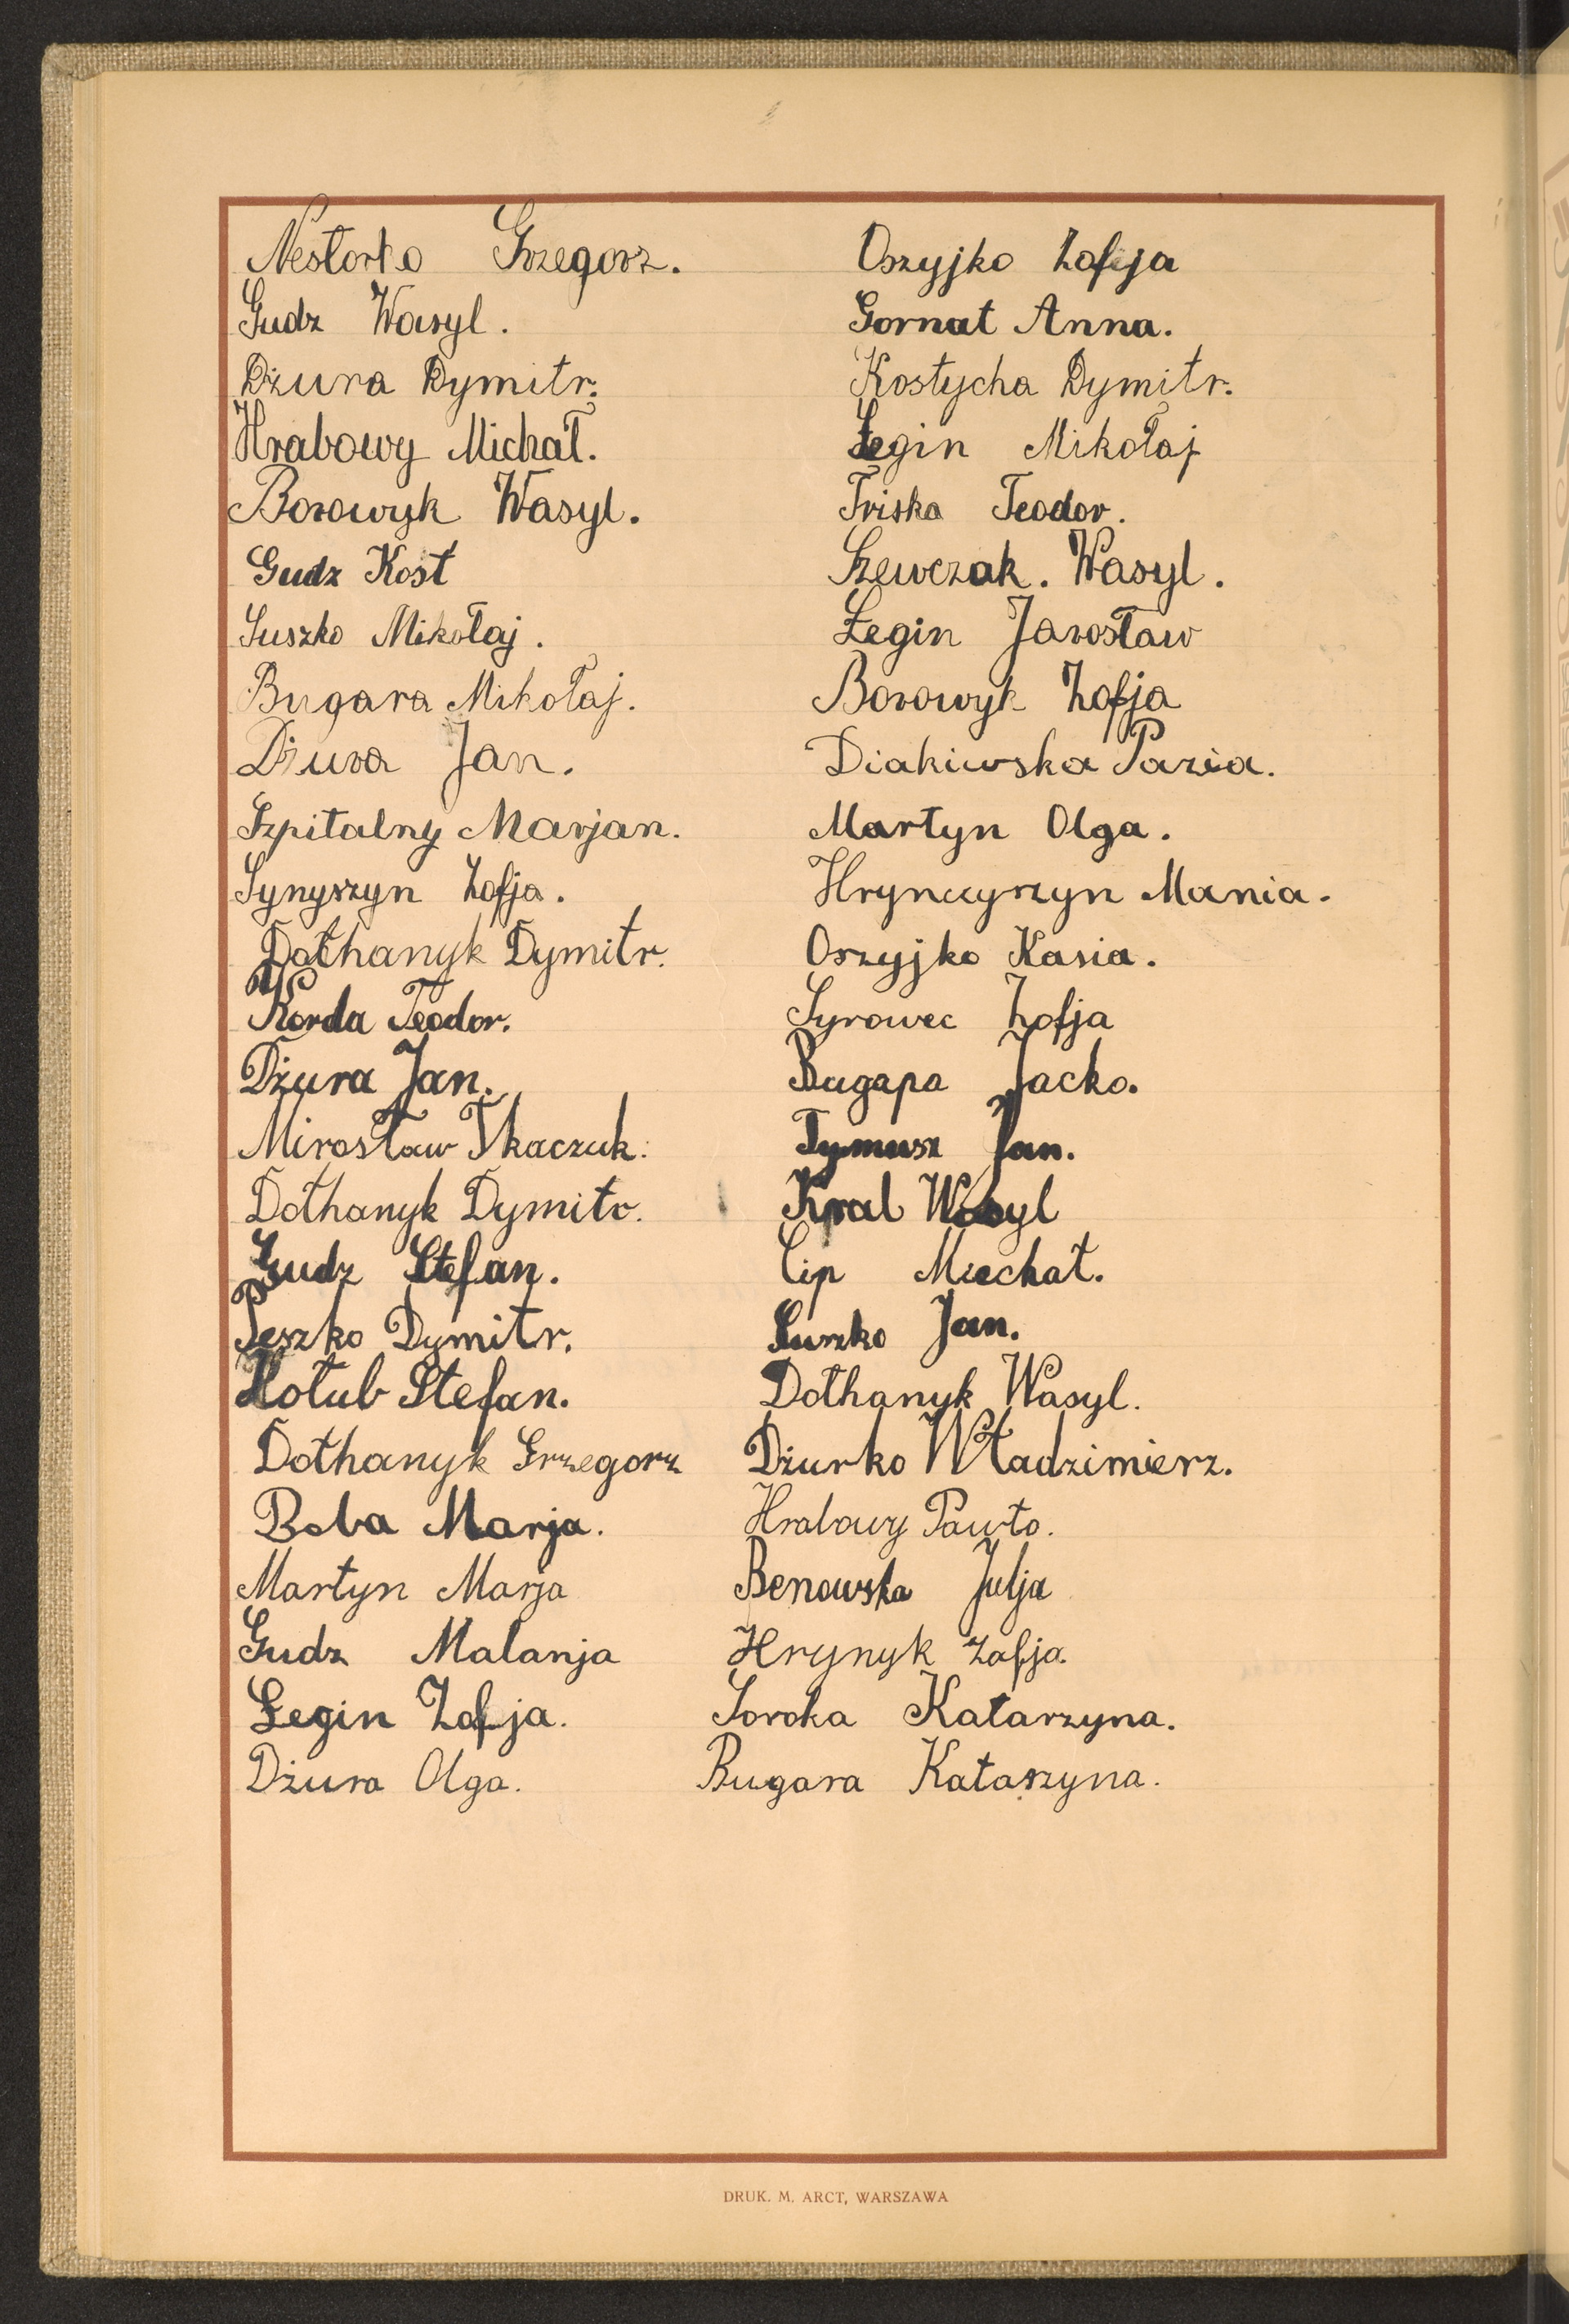 Nestorko Grzegorz.
Gudz Wasyl.
Dżura Dymitr.
Hrabowy Michał.
Borowyk Wasyl.
Gudz Kost
Suszko Mikołaj.
Bugara Mikołaj.
Dżura Jan.
Szpitalny Marjan.
Synyszyn Zofja.
Dothanyk Dymitr.
Korda Teodor.
Dżura Jan.
Mirosław Tkaczuk.
Dothanyk Dymitr.
Gudz Stefan.
Peszko Dymitr.
Hołub Stefan.
Dothanyk Grzegorz
Boba Marja.
Martyn Marja
Gudz Malanja
Łegin Zofja.
Dżura Olga.
Oszyjko Zofja
Gornat Anna.
Kostycha Dymitr.
Łegin Mikołaj
Triska Teodor.
Szewczak. Wasyl.
Łegin Jarosław
Borowyk Zofja
Diakiwska Paria.
Martyn Olga.
Hryncyszyn Mania.
Oszyjko Kasia.
Syrowec Zofja
Bugapa Jacko.
Tymusz Jan.
Kral Wasyl
Cip Miechał.
Suszko Jan.
Dothanyk Wasyl.
Dżurko Władzimierz.
Hrabowy Pawło.
Benowska Julja
Hrynyk Zofja.
Soroka Katarzyna.
Bugara Katarzyna.
DRUK. M. ARCT, WARSZAWA